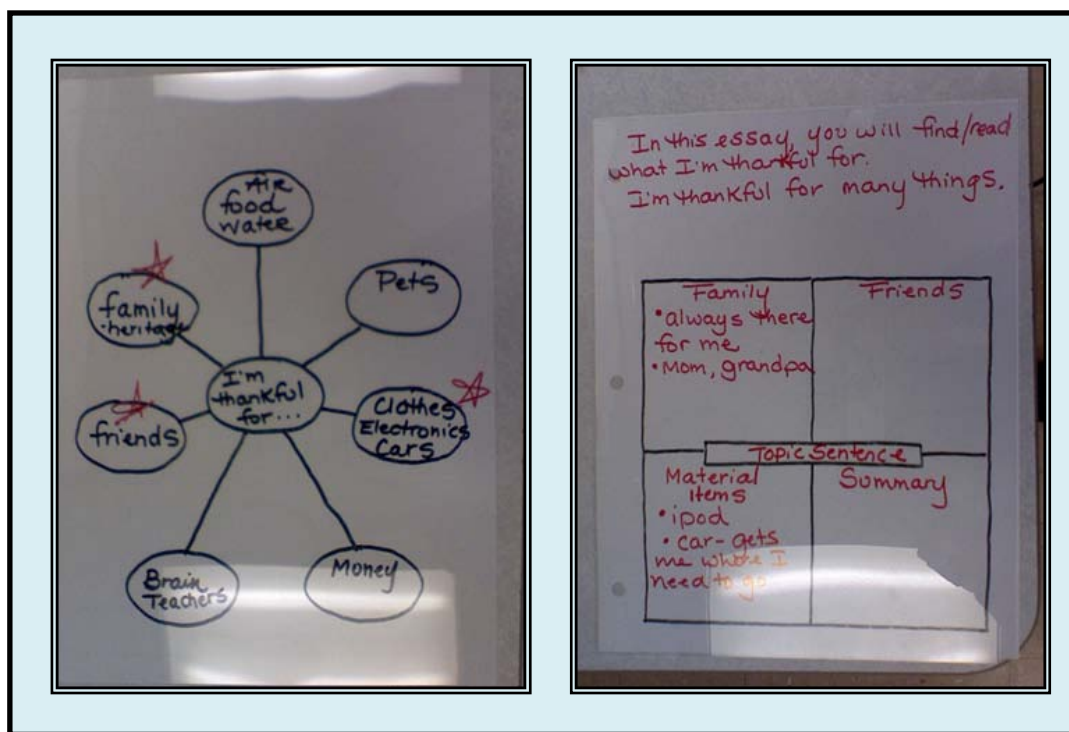 Air
food
water
Pets
family
•heritage
I'm
thankful
for...
Clothes
Electronics
Cars
friends
Brain
Teachers
Money
In this essay, you will find/read
what I'm thankful for.
I'm thankful for many things.
Family
•always there
for me
•Mom, grandpa
Friends
Topic Sentence
Material
Items
•ipod
•car-gets
me where I
need to go
Summary